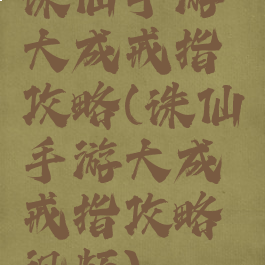 诛仙手游
大成戒指
攻略(诛仙
手游大成
戒指攻略
视频)